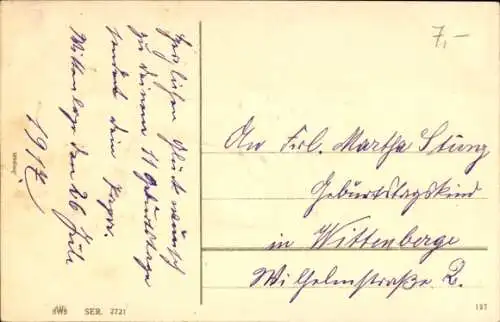 Herzlichen Glückwunsch
zu deinem 11 Geburtstage
sendet dein Papa.
Wittenberge den 26 Juli
1917
7,-
An Frl. Martha Stung
Geburtstagskind
in Wittenberge
Wilhelmstraße 2.
SWS SER. 2721
197